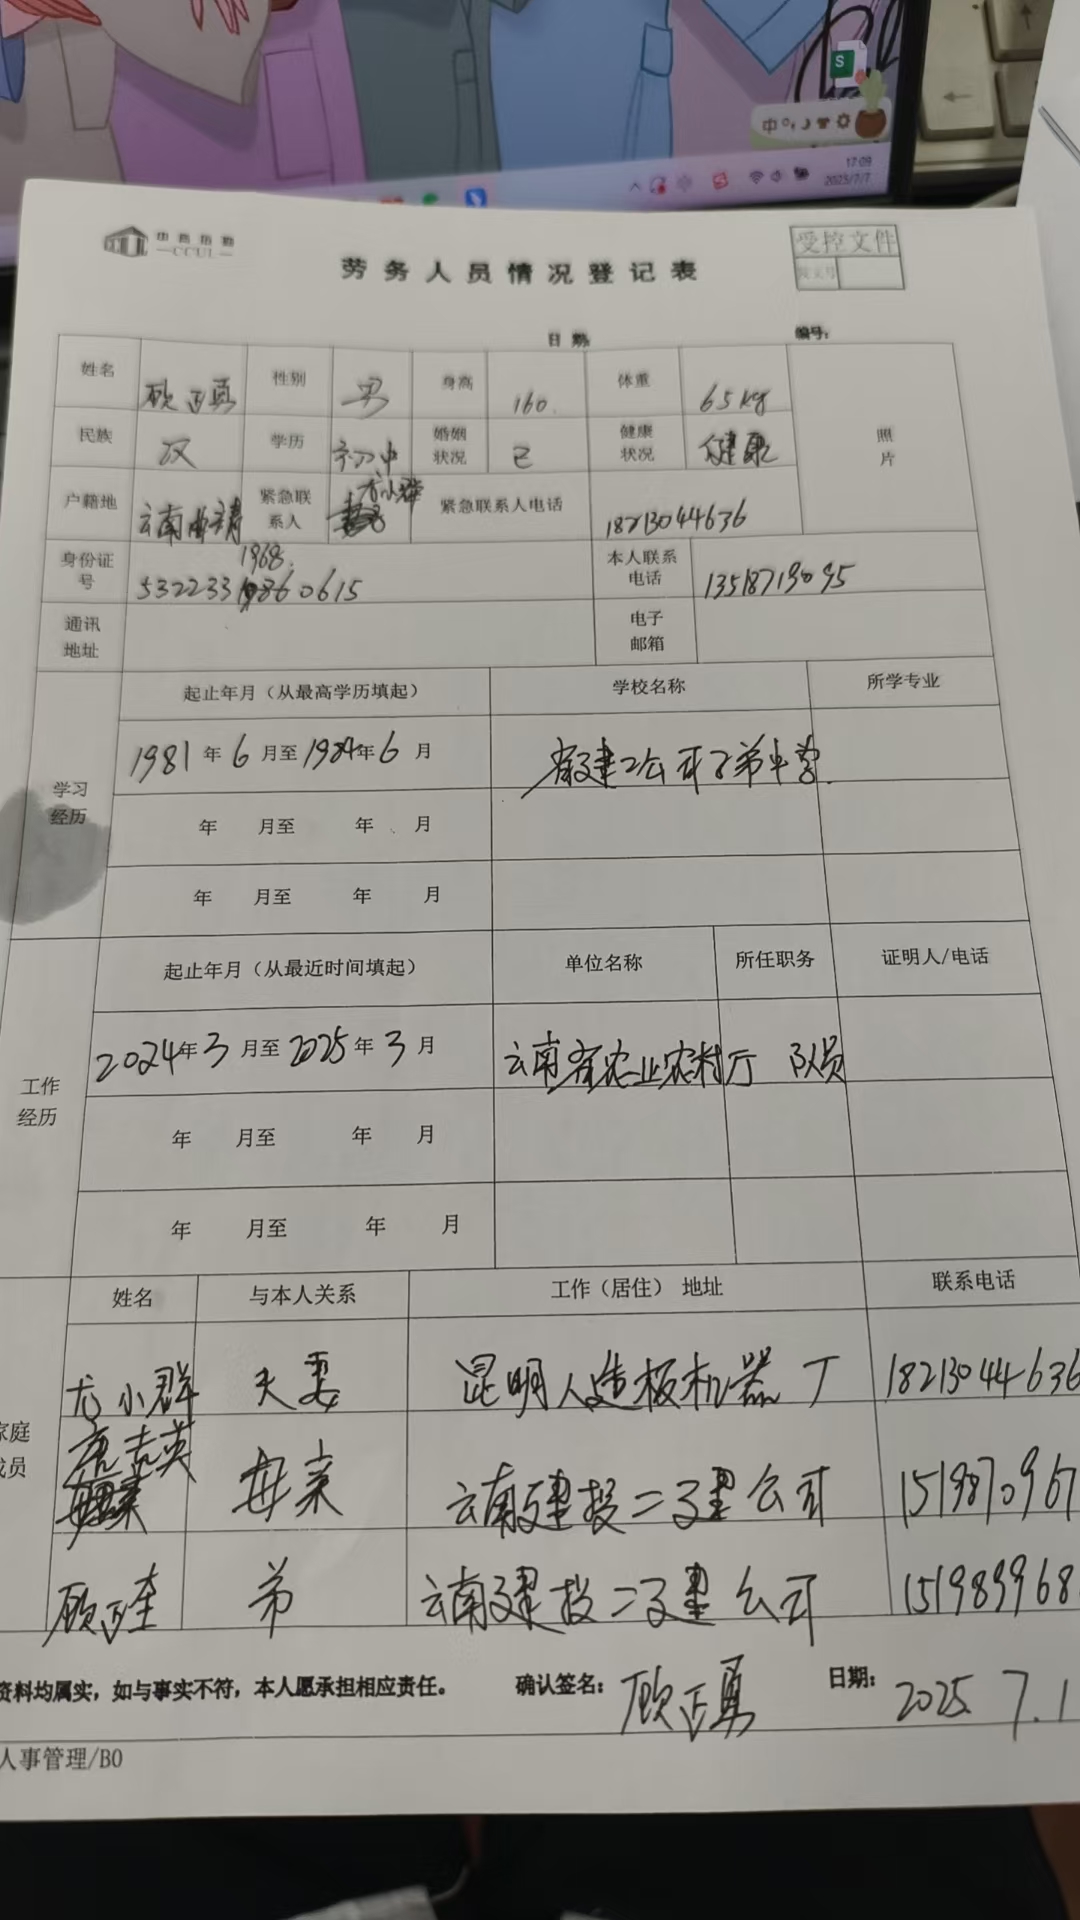 S
中
17:09
2025/7/7
CCUL
受控文件
劳务人员情况登记表
日期:
编号:
姓名 顾正勇 性别 男 身高 160 体重 65kg
民族 汉 学历 初中 婚姻状况 已 健康状况 健康
照片
户籍地 云南曲靖 紧急联系人 尤小群 紧急联系人电话 18213044636
1968
身份证号 532233 19860615 本人联系电话 13518713095
通讯地址 电子邮箱
学习经历
起止年月（从最高学历填起） 学校名称 所学专业
1981年6月至1984年6月 省建二公司子弟中学
年 月至 年 月
年 月至 年 月
工作经历
起止年月（从最近时间填起） 单位名称 所任职务 证明人/电话
2024年3月至2025年3月 云南省农业农村厅 队员
年 月至 年 月
年 月至 年 月
家庭成员
姓名 与本人关系 工作（居住）地址 联系电话
尤小群 夫妻 昆明人造板机器厂 18213044636
唐吉英 母亲 云南建投二建公司 1519870967
顾正奎 弟 云南建投二建公司 151989968
资料均属实，如与事实不符，本人愿承担相应责任。 确认签名: 顾正勇 日期: 2025.7.1
人事管理/B0